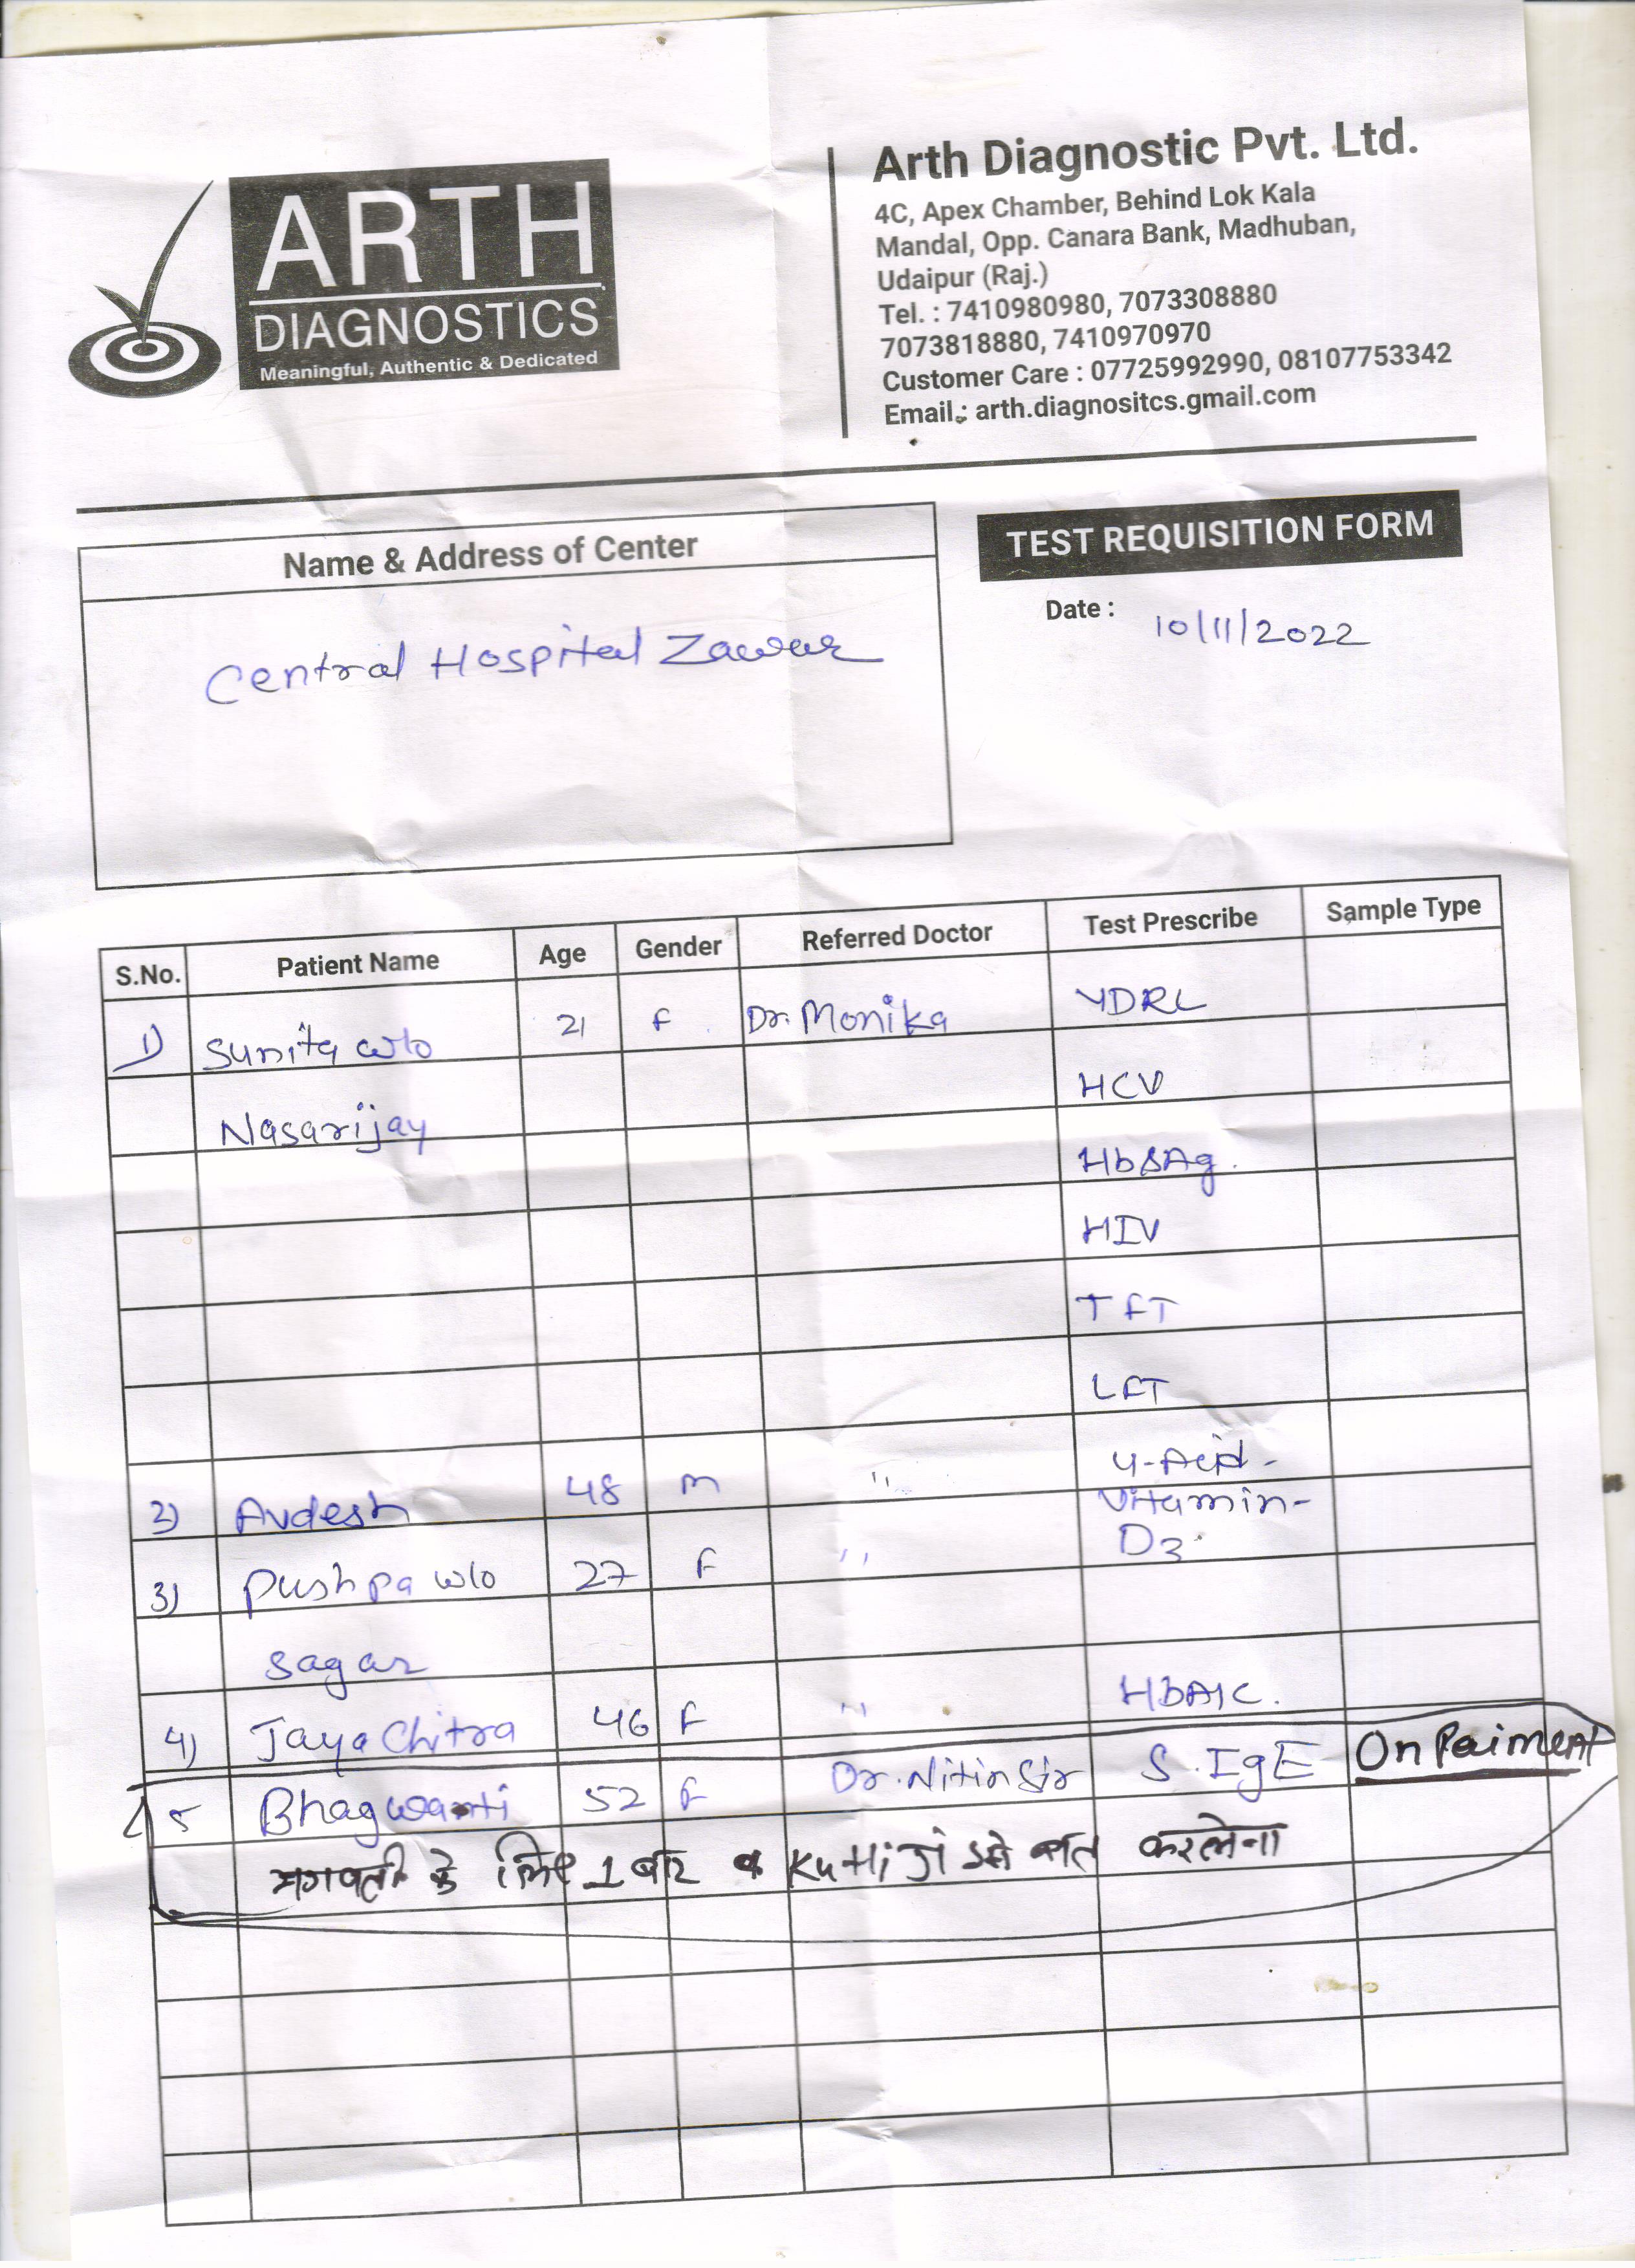 ARTH
DIAGNOSTICS
Meaningful, Authentic & Dedicated
Arth Diagnostic Pvt. Ltd.
4C, Apex Chamber, Behind Lok Kala
Mandal, Opp. Canara Bank, Madhuban,
Udaipur (Raj.)
Tel. : 7410980980, 7073308880
7073818880, 7410970970
Customer Care : 07725992990, 08107753342
Email : arth.diagnositcs.gmail.com
Name & Address of Center
TEST REQUISITION FORM
Central Hospital Zawar
Date : 10/11/2022
S.No. Patient Name Age Gender Referred Doctor Test Prescribe Sample Type
1) Sunita w/o 21 F Dr. Monika VDRL
Nasarijay HCV
HbsAg.
HIV
TFT
LFT
2) Avdesh 48 m " U-Acid-
3) Pushpa w/o 27 F " Vitamin-
D3.
Sagar
4) Jaya Chitra 46 F " HbA1C.
5 Bhagwanti 52 F Dr. Nitin Sir S. IgE On Paiment
भगवती के लिए 1 बार Kutti जी से बात करलेना